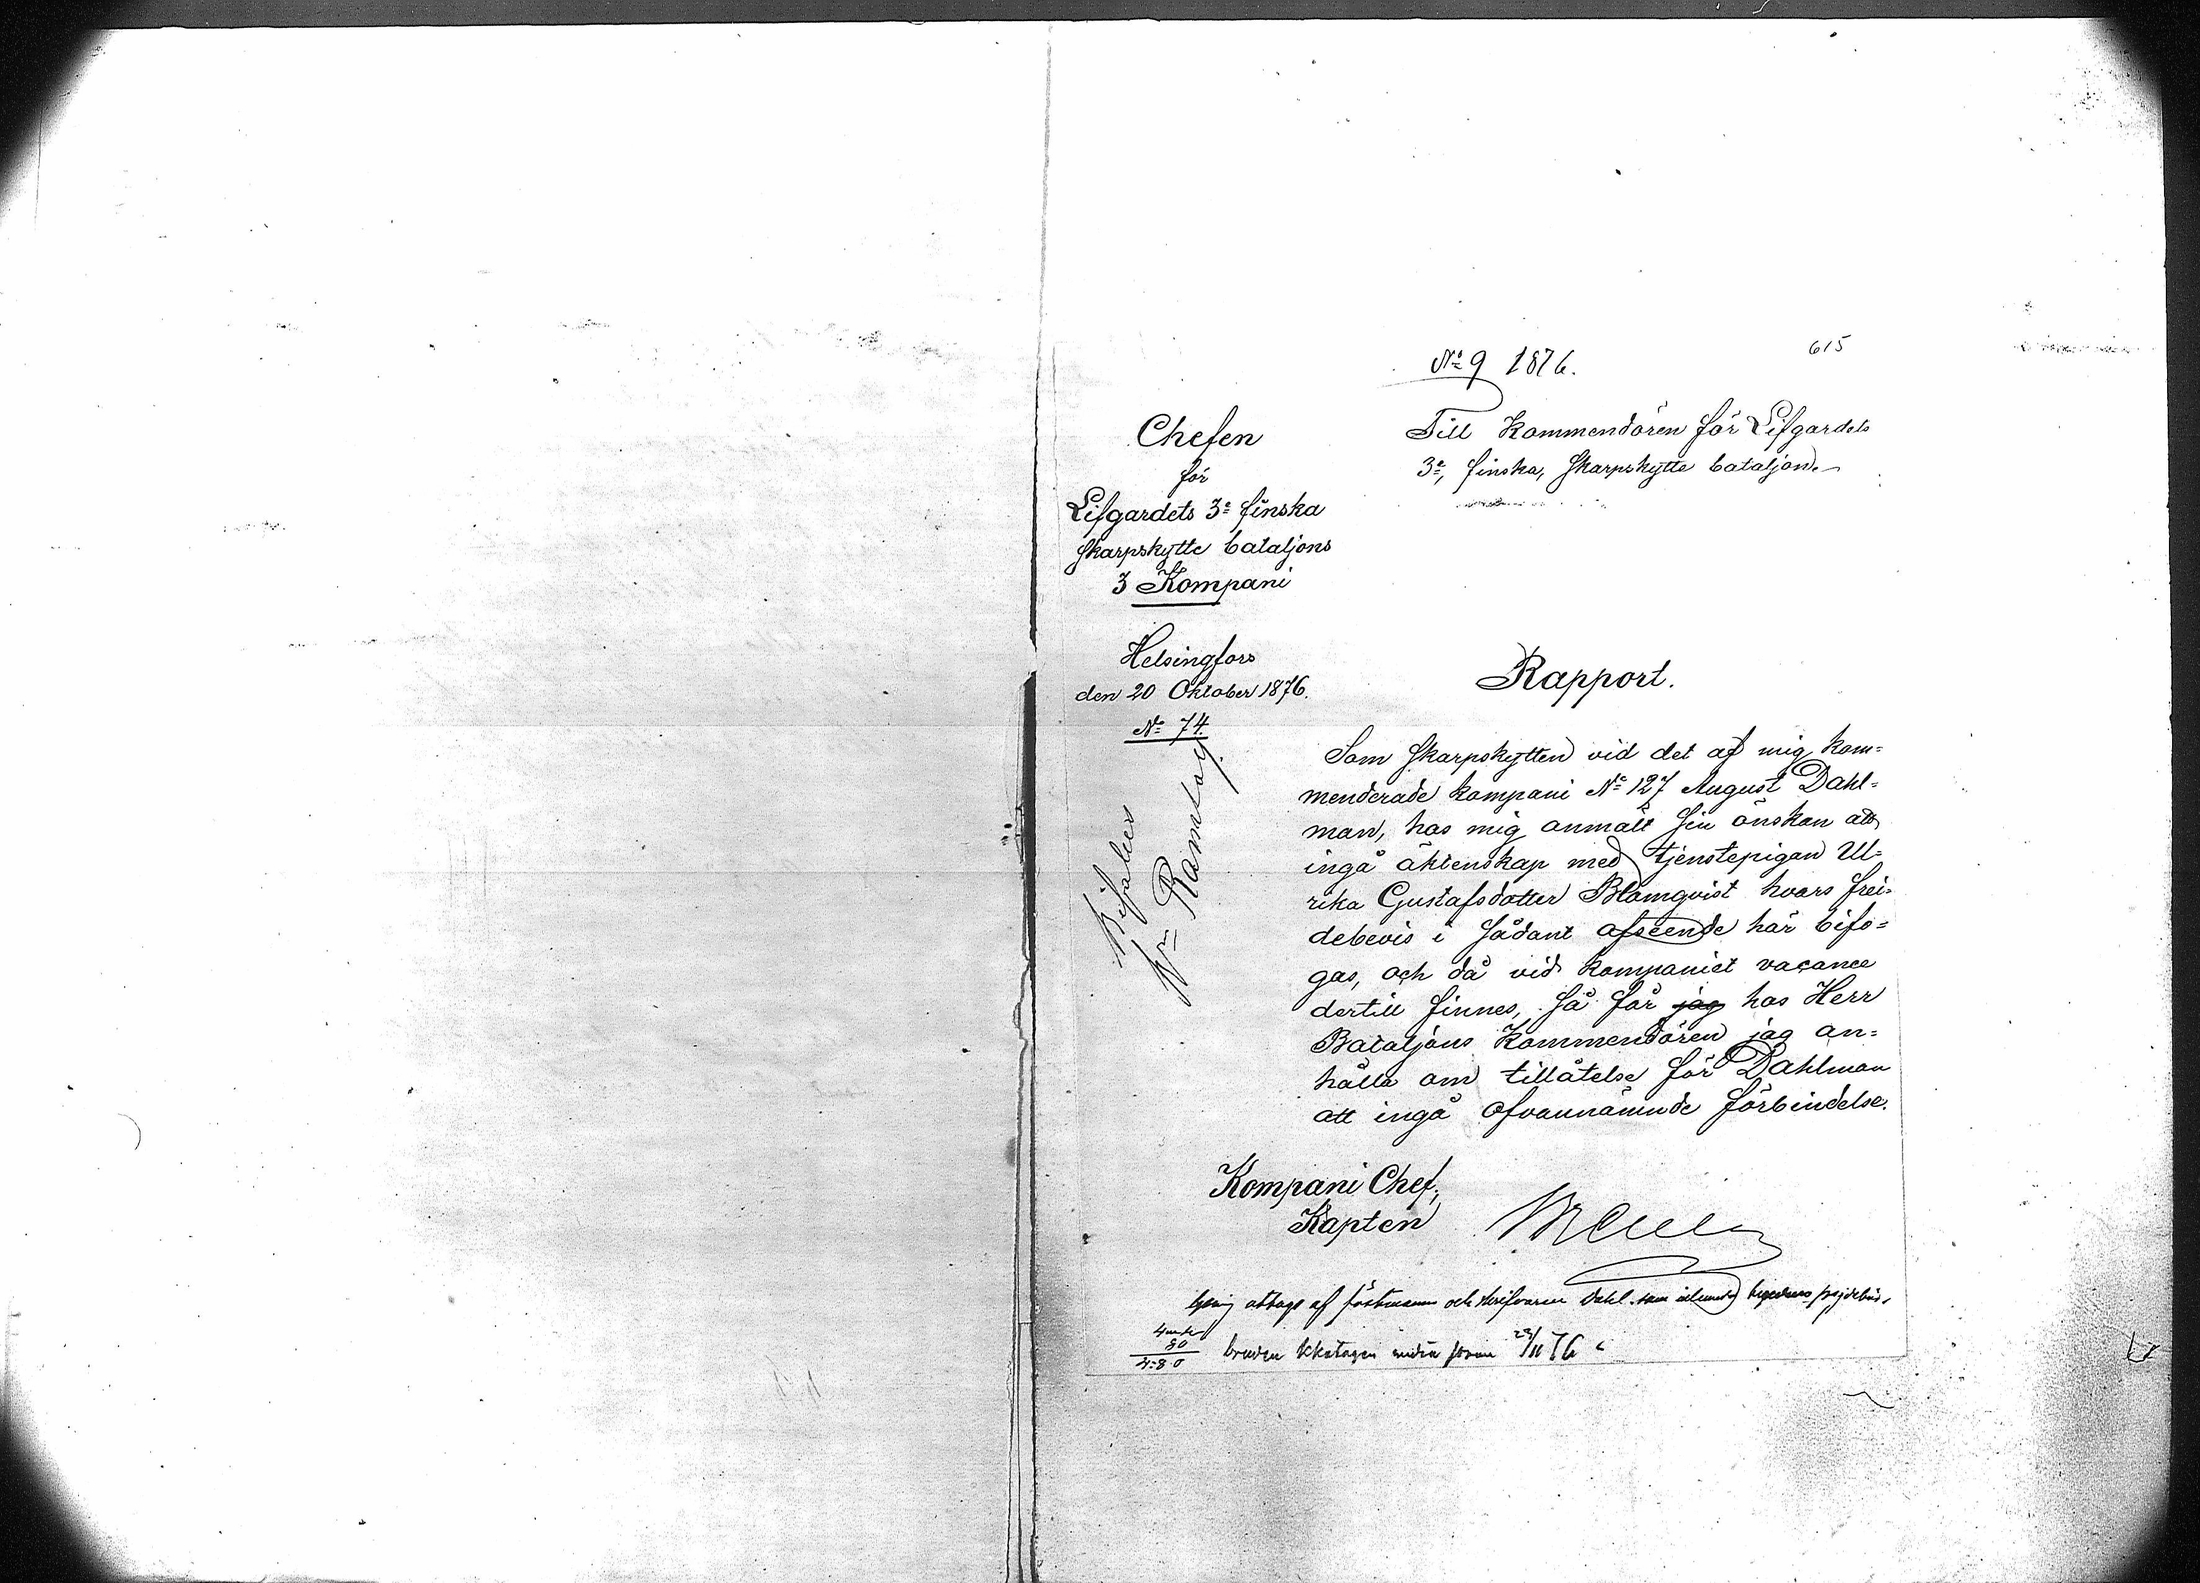 615
No 9 1876.
Chefen
för
Lifgardets 3e finska
skarpskytte bataljons
3 Kompani
Helsingfors
den 20 Oktober 1876.
No 74.
Till Kommendören för Lifgardets
3e, finska, skarpskytte bataljon.
Bifalles
Wm Ramsay.
Rapport.
Som skarpskytten vid det af mig kom=
menderade kompani No 127 August Dahl=
man, hos mig anmält sin önskan att
ingå äktenskap med tjenstepigan Ul=
rika Gustafsdotter Blomqvist hvars frei=
debevis i sådant afseende här bifo=
gas, och då vid kompaniet vacance
dertill finnes, så får jag hos Herr
Bataljons Kommendören jag an=
hålla om tillåtelse för Dahlman
att ingå ofvannämnde förbindelse.
Kompani Chef,
Kapten
lysning af fästmann och skrifvaren Dahl. som
80
4=80
bruden